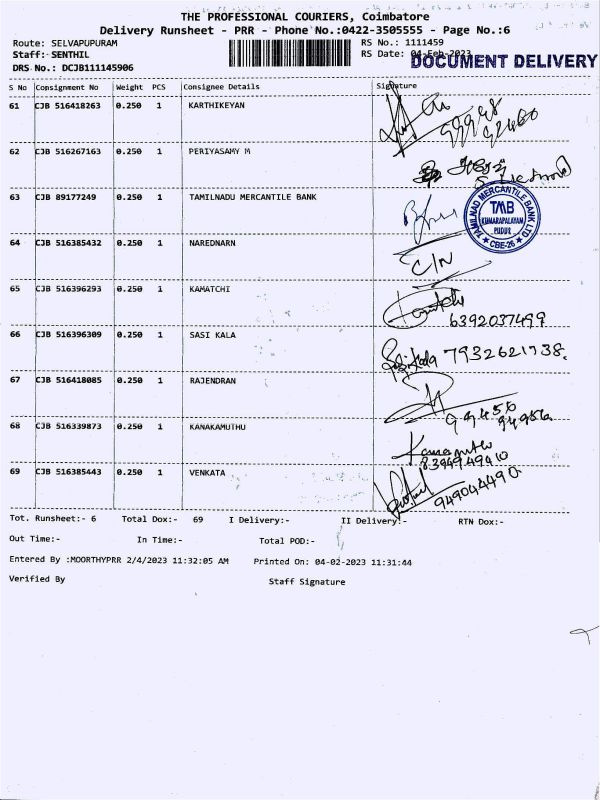 THE PROFESSIONAL COURIERS, Coimbatore
Delivery Runsheet - PRR - Phone No.:0422-3505555 - Page No.:6
Route: SELVAPUPURAM RS No.: 1111459
Staff: SENTHIL RS Date: 04-Feb-2023 DOCUMENT DELIVERY
DRS No.: DCJB111145906
S No Consignment No Weight PCS Consignee Details Signature
61 CJB 516418263 0.250 1 KARTHIKEYAN
62 CJB 516267163 0.250 1 PERIYASAMY M
63 CJB 89177249 0.250 1 TAMILNADU MERCANTILE BANK
TAMILNAD MERCANTILE BANK LTD
TMB
KUMARAPALAYAM
PUDUR
CBE-26
64 CJB 516385432 0.250 1 NAREDNARN
C/N
65 CJB 516396293 0.250 1 KAMATCHI
6392037499
66 CJB 516396309 0.250 1 SASI KALA
7932621738.
67 CJB 516418085 0.250 1 RAJENDRAN
68 CJB 516339873 0.250 1 KANAKAMUTHU
8394949410
69 CJB 516385443 0.250 1 VENKATA
9490444490
Tot. Runsheet:- 6 Total Dox:- 69 I Delivery:- II Delivery:- RTN Dox:-
Out Time:- In Time:- Total POD:-
Entered By :MOORTHYPRR 2/4/2023 11:32:05 AM Printed On: 04-02-2023 11:31:44
Verified By Staff Signature